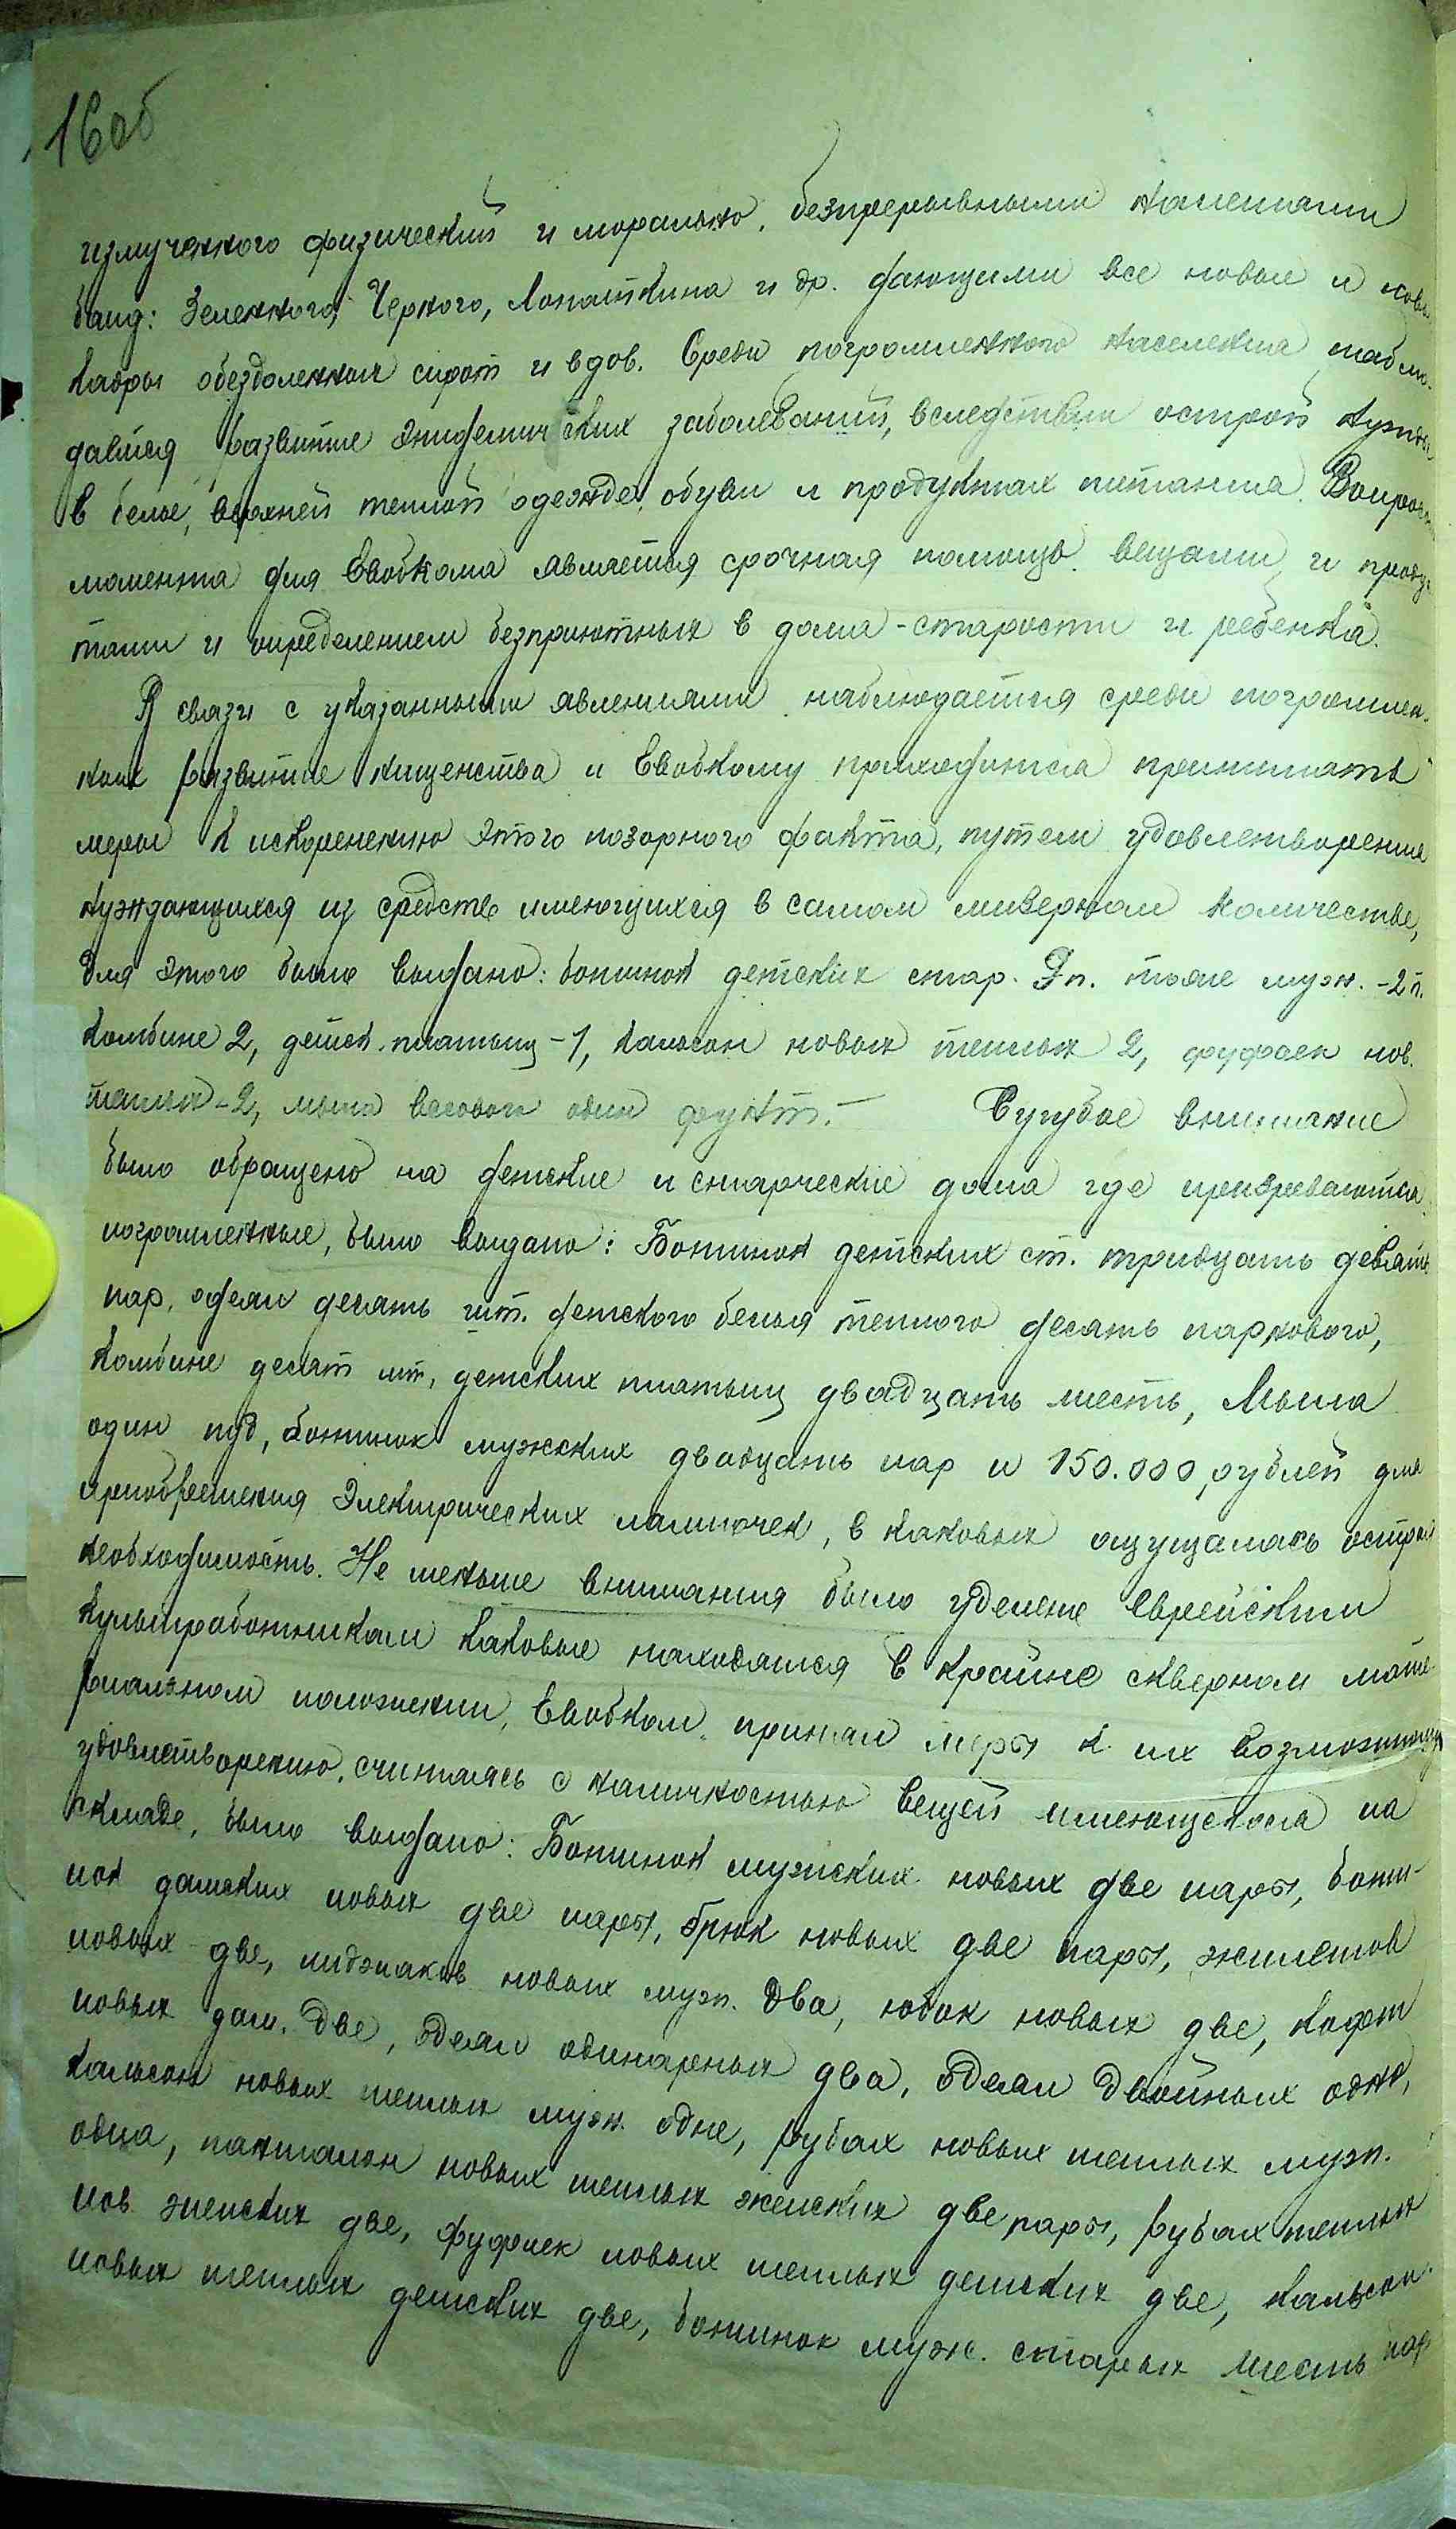 16об
измученного физический и морально, безпрерывными налетами
банд: Зеленного, Черного, Лопаткина и др. дающими все новые и новы
кадры обездоленных сирот и вдов. Среди погромленного населения наблю-
дается развитие эпидемических заболеваний, вследствии острой нужды
в белье, верхней теплой одежде, обуви и продуктах питания. Вопросом
момента для Евобкома является срочная помощь вещами и продук
тами и определением безприютных в дома-старости и ребенка.
В связи с указанными явлениями наблюдается среди погромлен-
ных развитие нищенства и Евобкому приходится принимать
меры к искоренению этого позорного факта, путем удовлетворения
нуждающихся из средств имеющихся в самом мизерном количестве,
для этого было выдано: ботинок детских стар. п. тоже муж. -2 п.
комбине 2, детск. платьиц -1, кальсон новых теплых 2, фуфаек нов.
теплых -2, мыла весового один фунт.- Сугубое внимание
было обращено на детские и старческие дома где призреваются
погромленные, было выдано: Ботинок детских ст. тридцать девять
пар, одеял десять шт. детского белья теплого десять парнового,
комбине десят шт, детских платьиц двадцать шесть, Мыла
один пуд, ботинок мужских двадцать пар и 150.000 рублей для
приобретения Электрических лампочек, в каковых ощущалась острая
необходимость. Не меньше внимания было уделене Еврейским
культработникам каковые находятся в крайне скверном мате-
риальном положении, Евобком принял меры к их возможному
удовлетворению, считаясь с наличностью вещей имеющегося на
складе, было выдано: Ботинок мужских новых две пары, боти-
нок дамских новых две пары, брюк новых две пары, жилетов
новых две, пиджаков новых муж. два, юбок новых две, кофт
новых дам. две, одеял одинарных два, одеял двойных одно,
кальсон новых теплых муж. одне, рубах новых теплых муж.
одна, панталон новых теплых женских две пары, рубах теплых
нов. женских две, фуфаек новых теплых детских две, кальсон
новых теплых детских две, ботинок муж. старых шесть пар